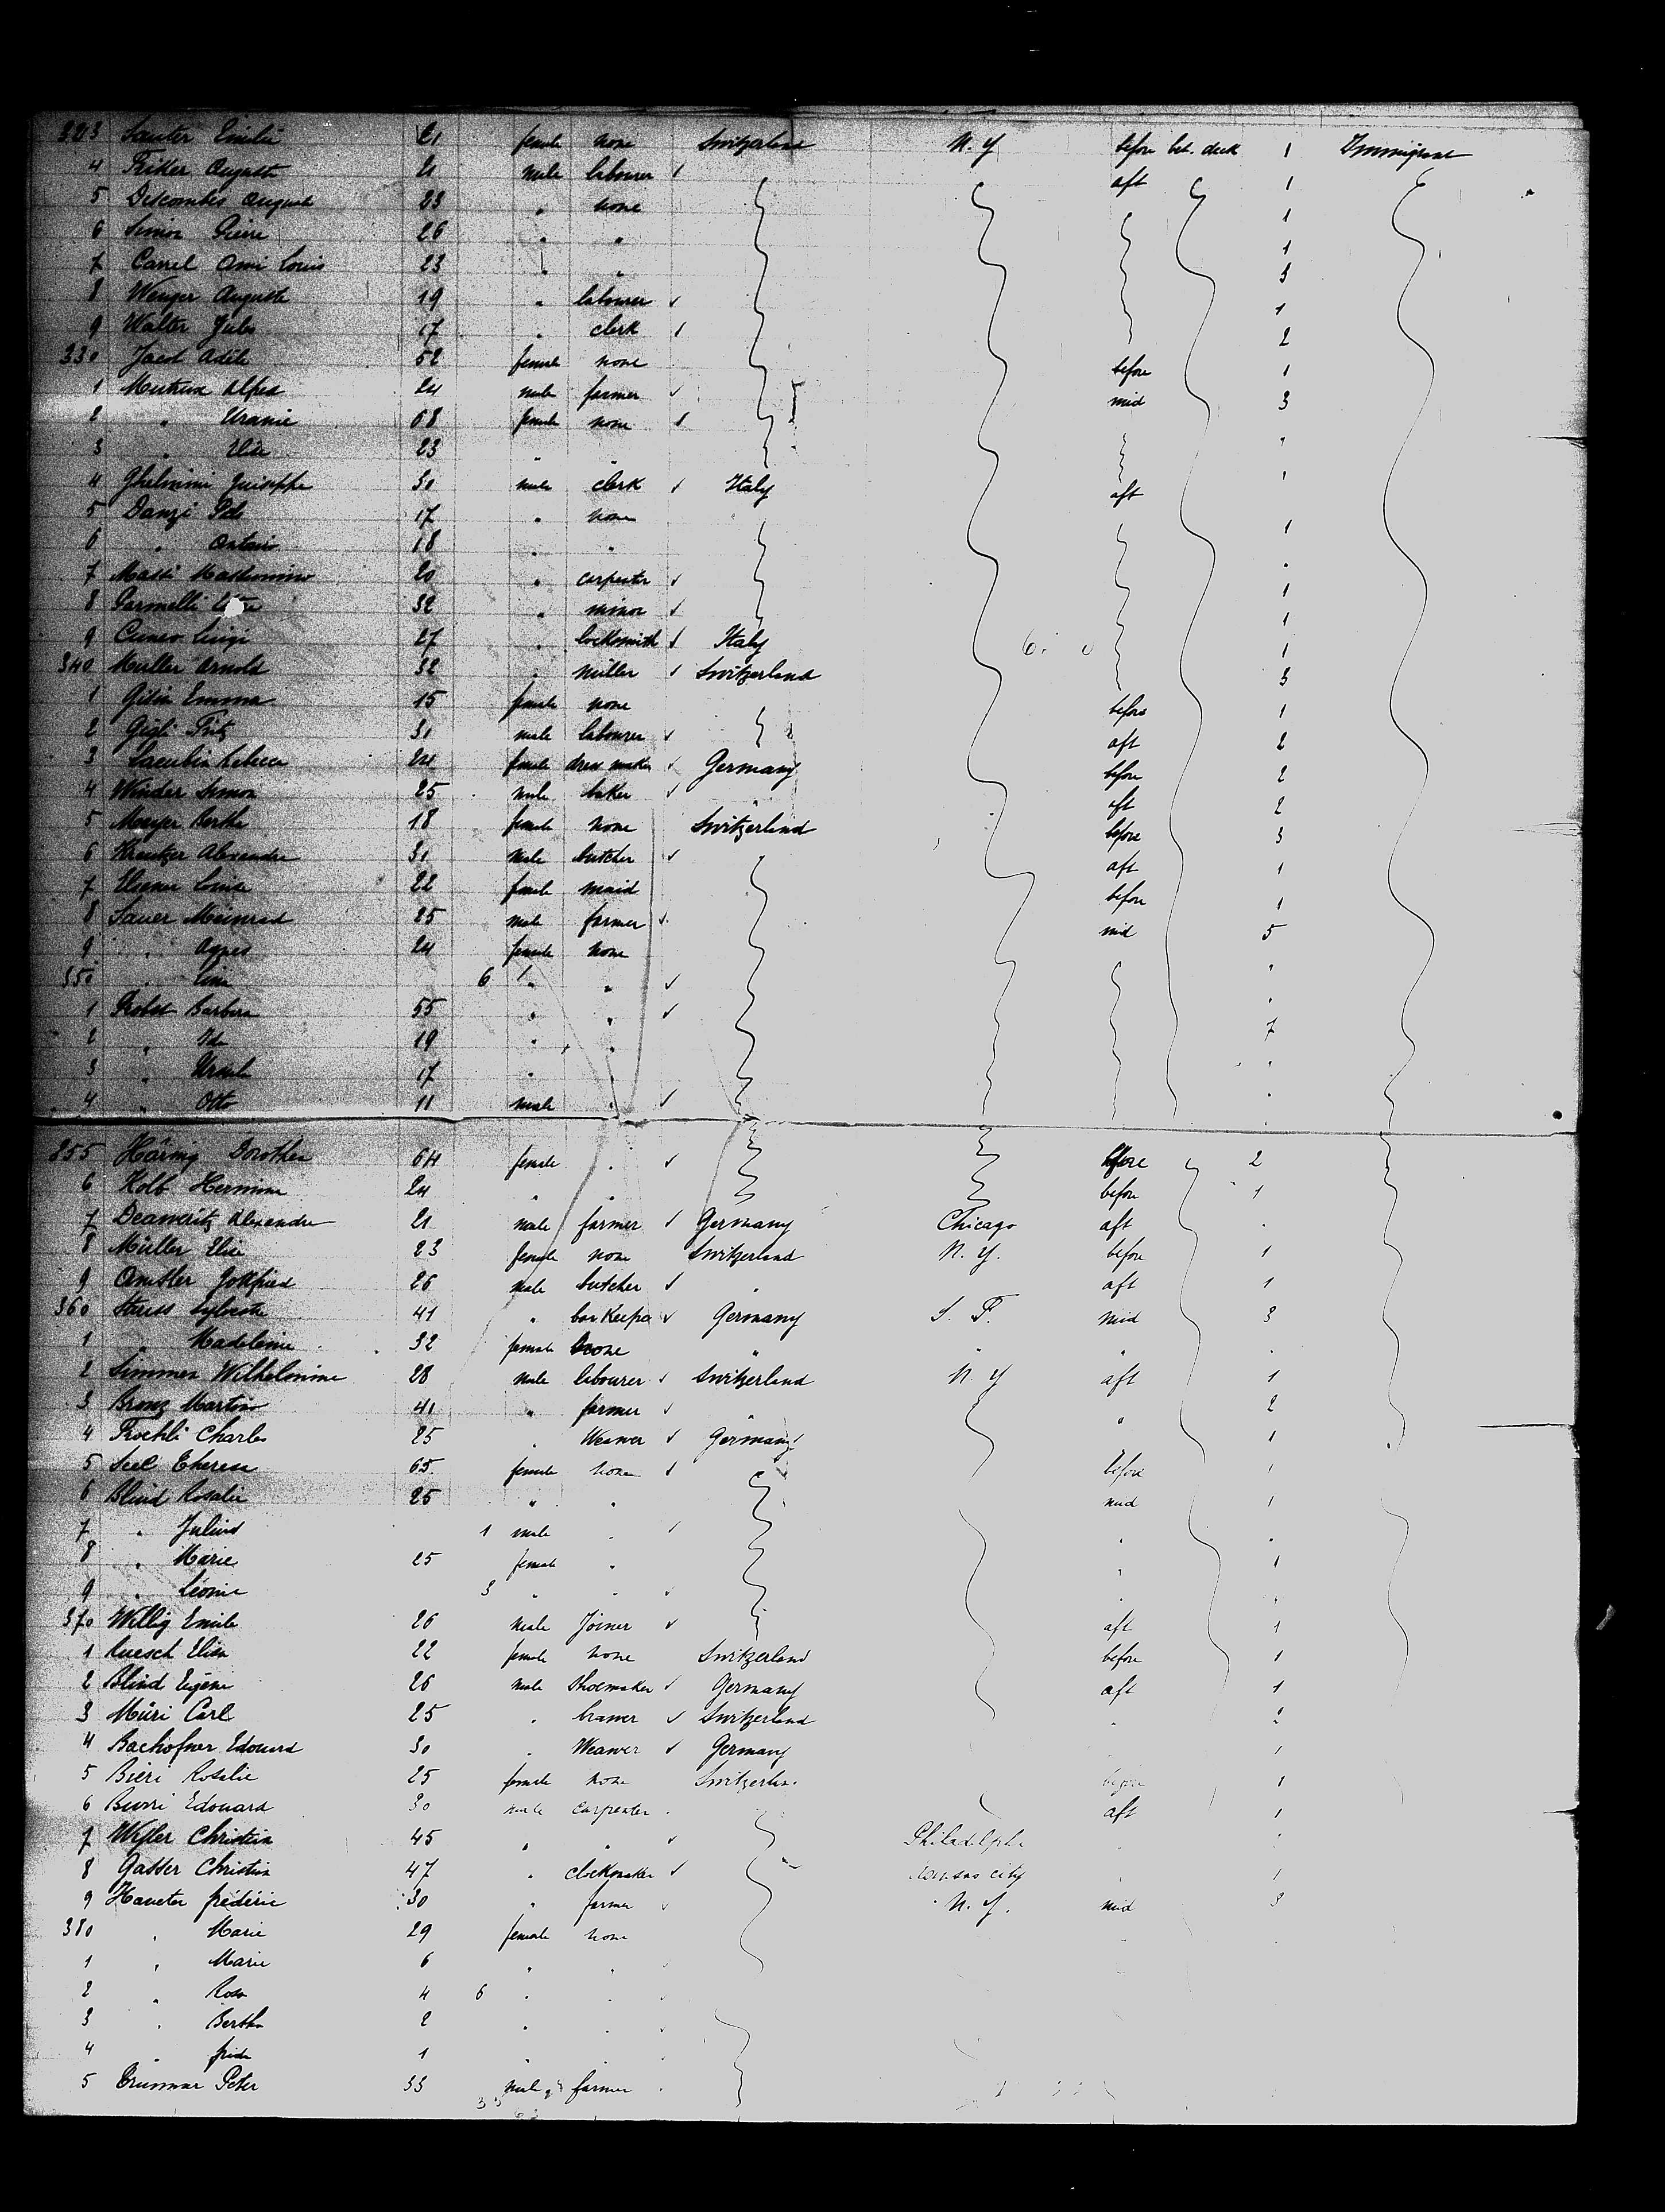 323 Sauter Emilie 21 female none Switzerland N. Y before bet. deck 1 Immigrant
4 Friker Auguste 21 male labourer aft 1
5 Descombes August 23 " none 1
6 Simon Pierre 26 " " 1
7 Carrel Ami Louis 23 " " 3
8 Wenger Auguste 19 " labourer 1
9 Walter Jules 17 " clerk 2
330 Jacot Adèle 52 female none before 1
1 Alfred 24 male farmer mid 3
2 " Uranie 68 female none "
3 " Elise 23 " " "
4 Ghelmini Guiseppe 30 male clerk Italy aft
5 Danzi 17 " none 1
6 " 18 " " "
7 Massimino 20 " carpenter 1
8 32 " minor 1
9 Cuneo Luigi 27 " locksmith Italy 1
340 Muller Arnold 32 " miller Switzerland 3
1 Emma 15 female none before 1
2 Gigli Fritz 31 male labourer aft 2
3 Rebecca 24 female dress maker Germany before 2
4 Winder Simon 25 male baker " aft 2
5 Meyer Bertha 18 female none Switzerland before 3
6 Kreutzer Alexandre 31 male butcher aft 1
7 Elsener Louise 22 female maid before 1
8 Sauer Meinrad 25 male farmer mid 5
9 " Agnes 24 female none "
350 " Lina 6 " " "
1 Probst Barbara 55 " " 7
2 " Ida 19 " " "
3 " Ursula 17 " " "
4 " Otto 11 male " "
355 Häring Dorothea 64 female " before 2
6 Kolb Hermine 24 " " before 1
7 Alexandre 21 male farmer Germany Chicago aft "
8 Müller Elise 23 female none Switzerland N. Y. before 1
9 Amsler Gottfried 26 male butcher " aft 1
360 Sylvestre 41 " bar Keeper Germany S. F. mid 3
1 " Madeleine 32 female none " " " "
2 Simmen Wilhelmine 28 male labourer Switzerland N. Y aft 1
3 Bronz Martin 41 " farmer " " 2
4 Froehli Charles 25 " Weawer Germany 1
5 Seel Theresa 65 female none before 1
6 Blind Rosalie 25 " " mid 1
7 " Julius 1 male " " "
8 " Marie 25 female " " 1
9 " Léonie 3 " " " "
370 Willig Emile 26 male Joiner aft 1
1 Ruesch Elisa 22 female none Switzerland before 1
2 Blind Eugène 26 male Shoemaker Germany aft 1
3 Müri Carl 25 " Switzerland " 2
4 Bachofner Edouard 30 " Weawer Germany 1
5 Bieri Rosalie 25 female none Switzerlan before 1
6 Burri Edouard 30 male carpenter aft 1
7 Wyler Christian 45 " " Philadelphi
8 Gasser Christian 47 " clockmaker Kansas city 1
9 Haueter fréderic 30 " farmer N. Y. mid 3
380 " Marie 29 female none
1 " Marie 6 " "
2 " Rosa 4 6 " "
3 " Bertha 2 " "
4 " frida 1 " "
5 Peter 33 male farmer